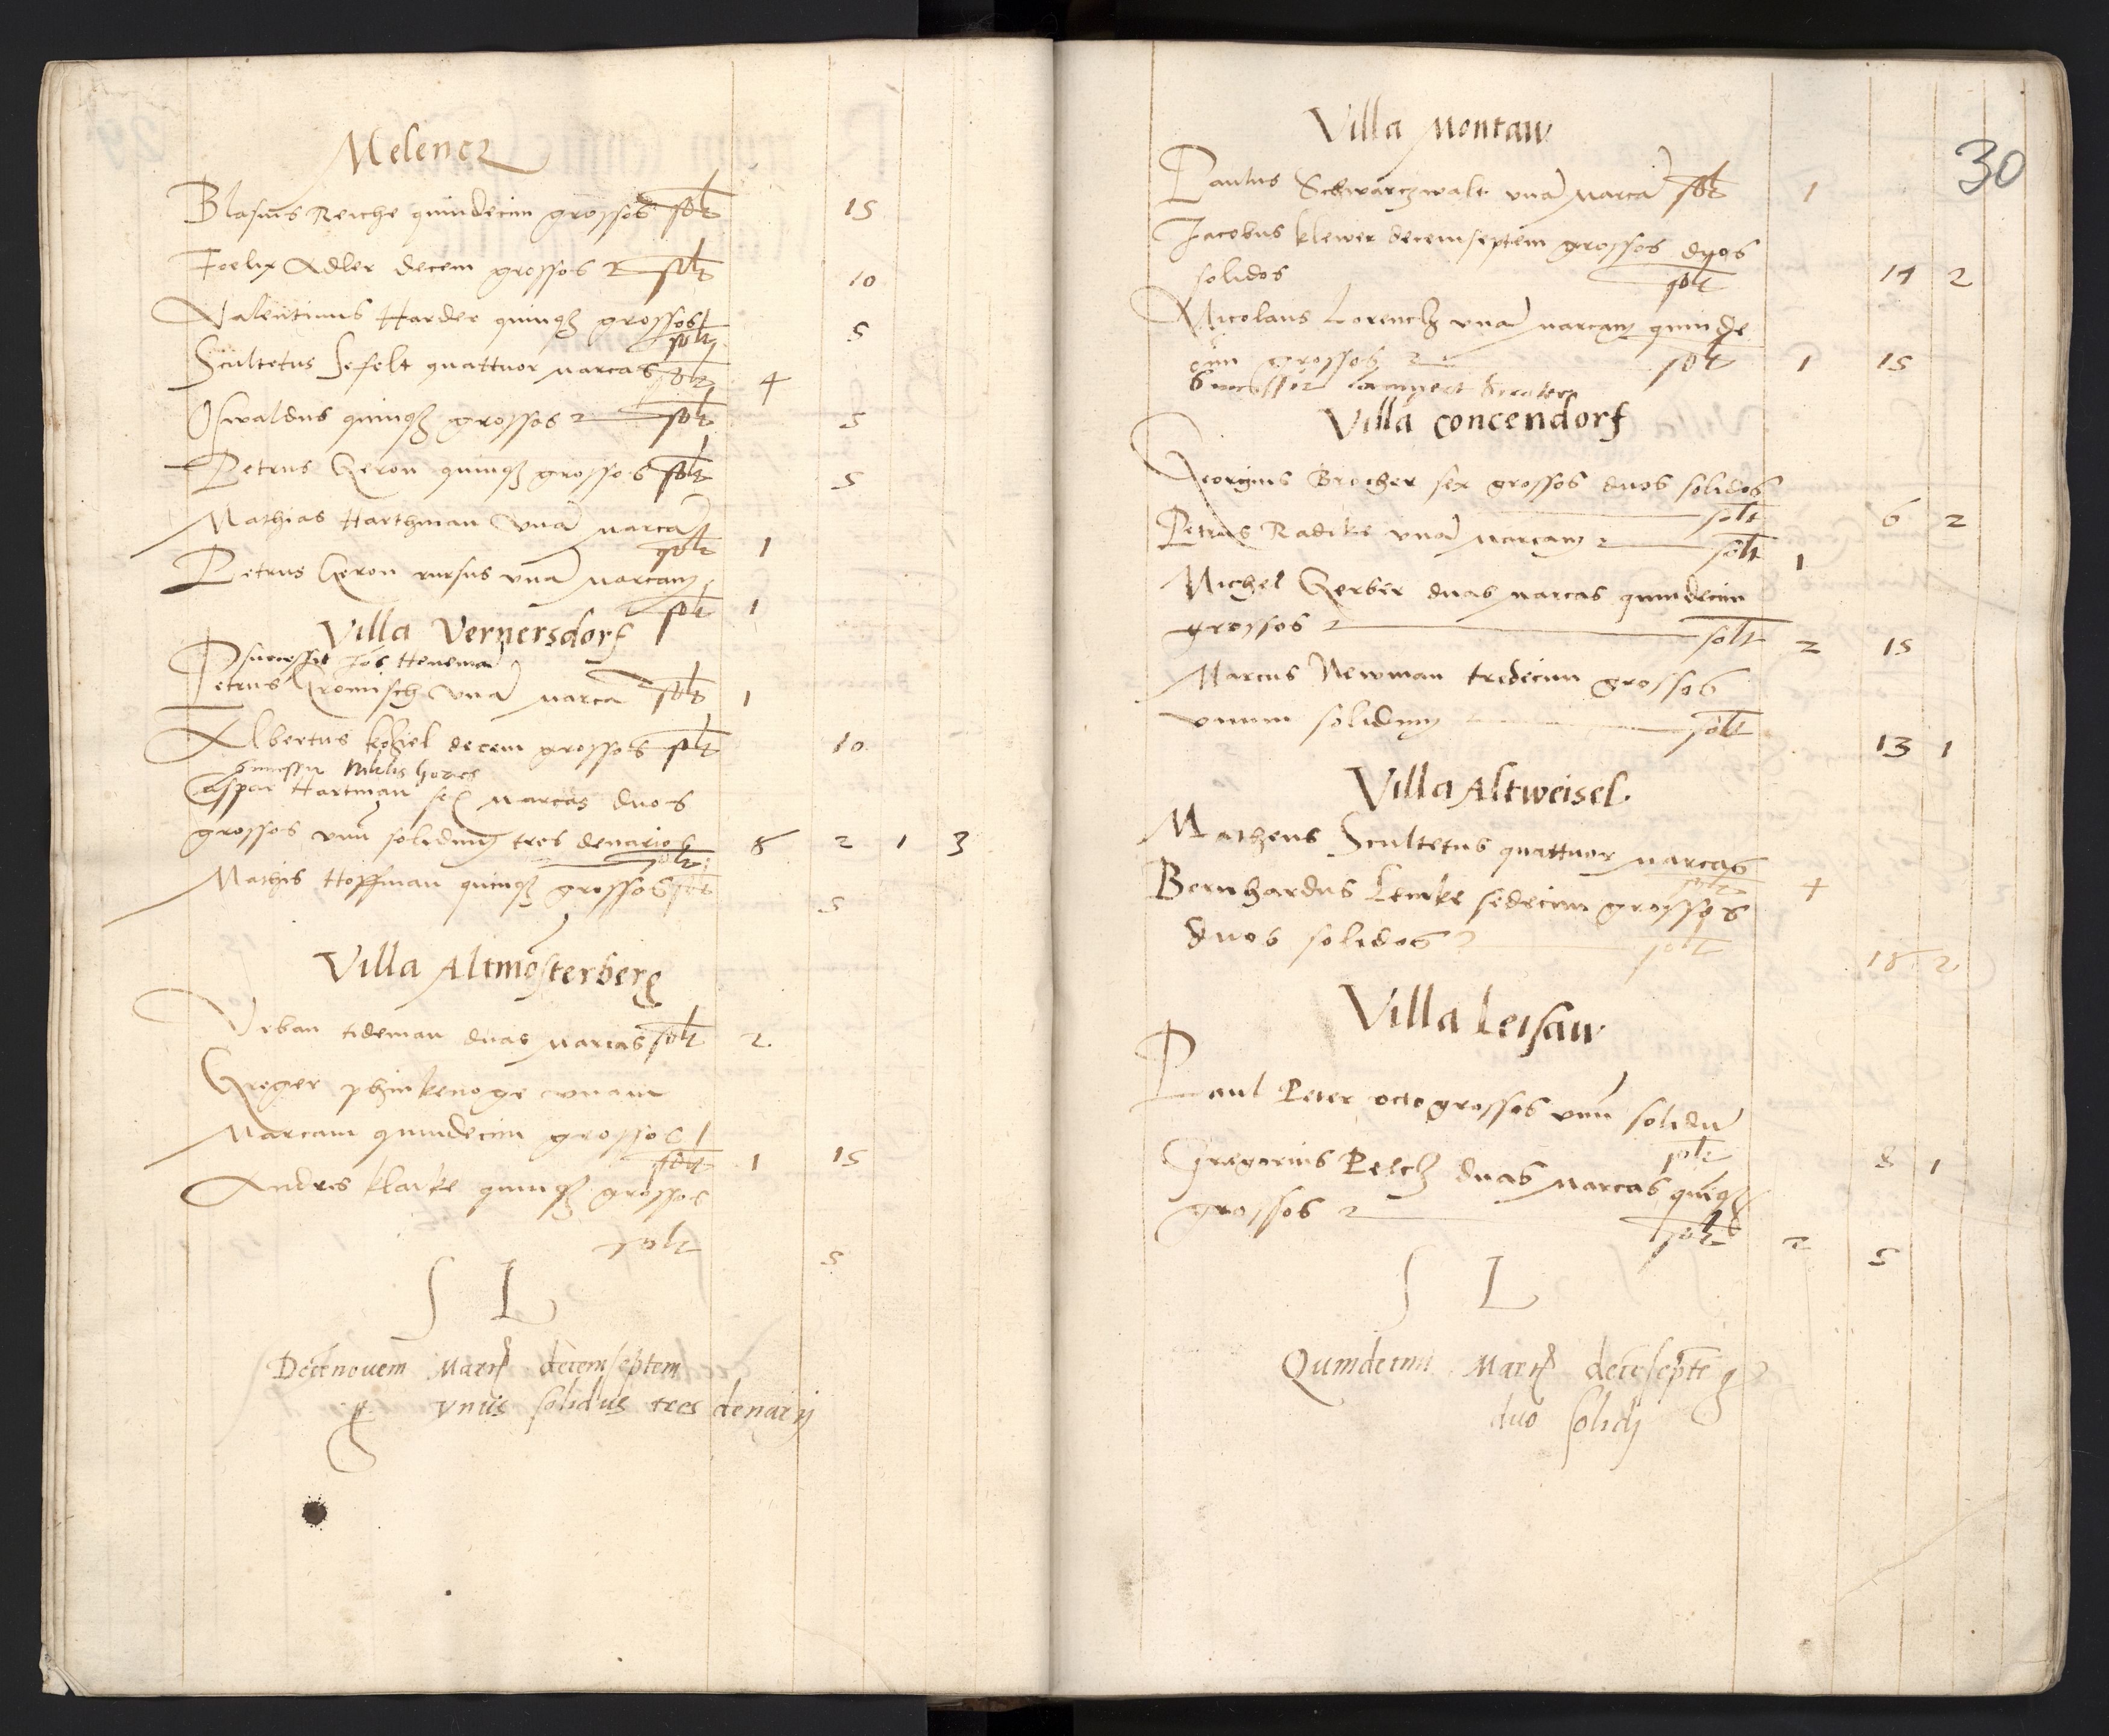 Melencz
Blasius Reiche quindecim grossos solt 15
Foelix Adler decem grossos solt 10
Valentinus Harder quinqȝ grossos
solt 5
Scultetus Sefelt quattuor marcas solt 4
Oswaldus quinqȝ grossos solt 5
Petrus Geron quinqȝ grossos solt 5
Mathias Harthman vnā marcā
solt 1
Petrus Geron rursus vnā marcam
solt 1
Villa Vernersdorf
successit Jos Heneman
Petrus Gromisch vnā marcā solt 1
Albertus koziel decem grossos solt 10
Successit Niklis
Caspar Hartman sex marcas duos
grossos vnū solidum tres denarios 6 2 1 3
solt
Mathis Hoffman quinqȝ grossos solt 5
Villa Altmosterberg
Vrban tideman duas marcas solt 2
Greger phinkenoge vnam
Marcam quindecim grossos
solt 1 15
Andres klacke quinqȝ grossos
solt 5
S L
Decēnouem Marcȩ decemseptem
g vnus solidus tres denarij
30
Villa Montaw
Paulus Schwarczwalt vnā marcā solt 1
Jacobus klewer decemseptem grossos duos
solidos solt 17 2
Nicolaus Lorencz vnā marcam quinde
cim grossos solt 1 15
Successor
Villa Concendorf
Georgius Brocher sex grossos duos solidos
solt 6 2
Petrus Radtke vnā marcam solt 1
Michel Gerber duas marcas quindecim
grossos solt 2 15
Marcus Newman tredecim grossos
vnum solidum solt 13 1
Villa Altweisel
Matheus Scultetus quattuor marcas
solt 4
Bernhardus Lemke sedecim grossos
duos solidos solt 16 2
Villa Leisaw
Paul Peter octo grossos vnū solidū
solt 8 1
Gregorius Pelcz duas marcas quiqȝ
grossos solt 2 5
S L
Quindecim Marcȩ decēseptē g
duo solidj